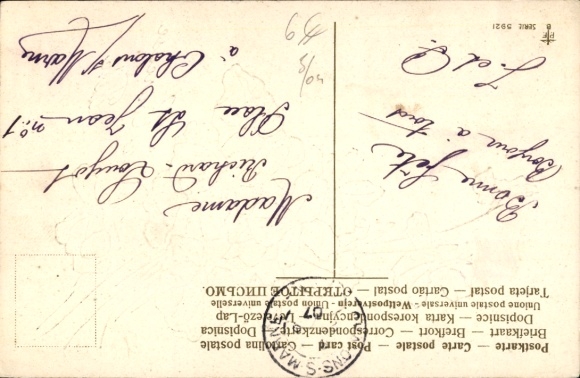 Postkarte — Carte postale — Post card — Cartolina postale
Briefkaart — Brefkort — Correspondenzkarte — Dopisnica
Dopisnice — Karta korespondencyjna — Levelező-Lap
Unione postale universale - Weltpostverein - Union postale universelle
Tarjeta postal — Cartão postal — ОТКРЫТОЕ ПИСЬМО.
CHALONS-S-MARNE
07
Bonne fête
Bonjour à tous
J. et P.
Madame
Richard-
Place St Jean no 1
à Chalons s/ Marne
SERIE 5921